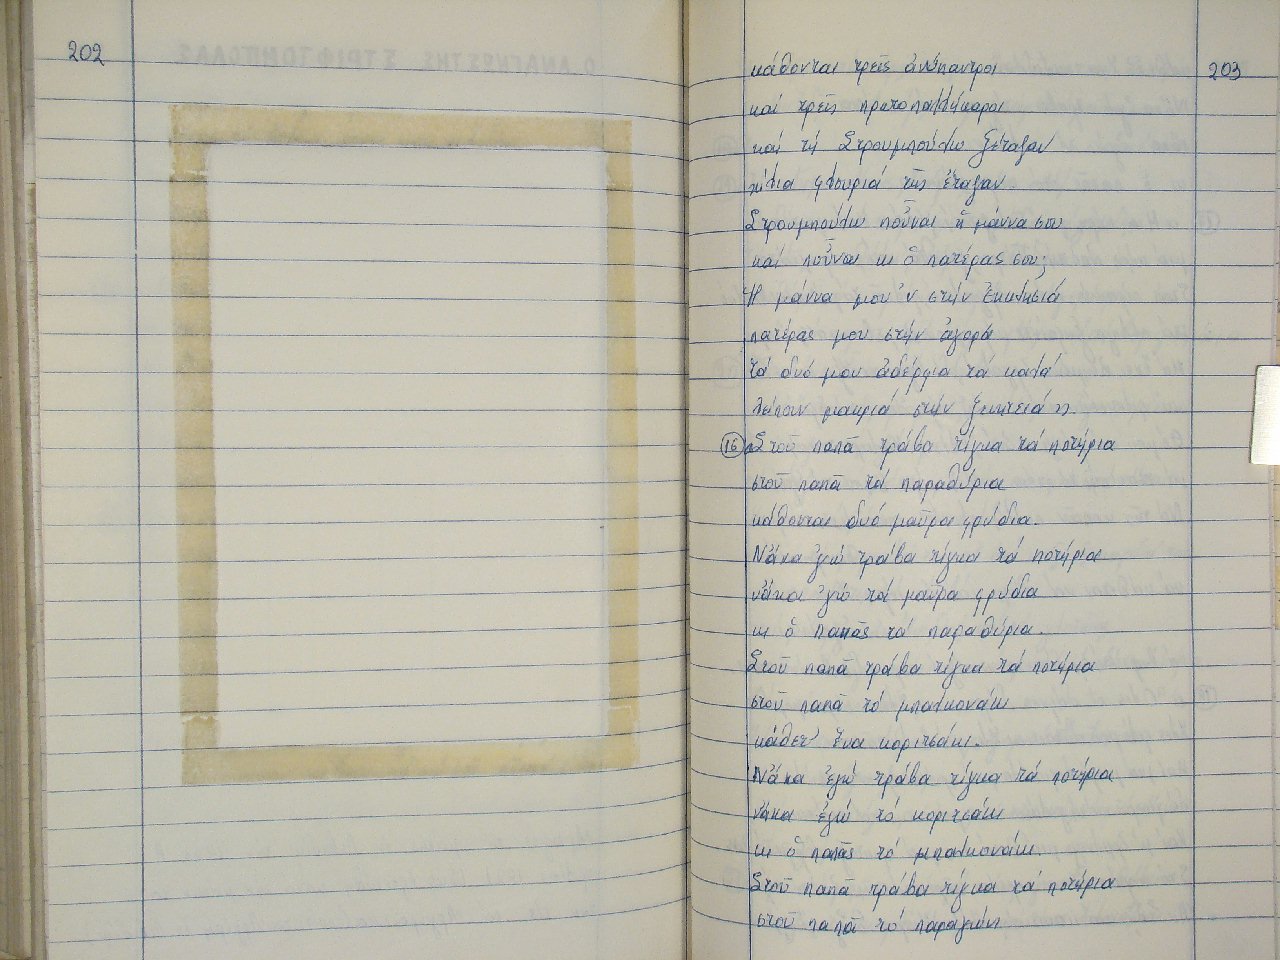 202
203
κάθονται τρεῖς ἀνύπαντροι
καί τρεῖς πρωτοπαλλήκαροι
καί τή Στρουμπούλω ξέταζαν
χίλια φλουριά τῆς ἔταζαν
Στρουμπούλω ποὖναι ἡ μάννα σου
καί ποὖναι κι ὁ πατέρας σου;
Ἡ μάννα μου 'ν στήν Ἐκκλησιά
πατέρας μου στήν ἀγορά
τά δυό μου ἀδέρφια τά καλά
λείπουν μακριά στήν ξενιτειά».
(16) «Στοῦ παπᾶ τράβα τίγκα τά ποτήρια
στοῦ παπᾶ τά παραθύρια
κάθονται δυό μαῦρα φρύδια.
Νἄχα 'γώ τράβα τίγκα τά ποτήρια
νἄχα 'γώ τά μαῦρα φρύδια
κι ὁ παπᾶς τά παραθύρια.
Στοῦ παπᾶ τράβα τίγκα τά ποτήρια
στοῦ παπᾶ τό μπαλκονάκι
κάθετ' ἕνα κοριτσάκι.
Νἄχα ἐγώ τράβα τίγκα τά ποτήρια
νἄχα ἐγώ τό κοριτσάκι
κι ὁ παπᾶς τό μπαλκονάκι.
Στοῦ παπᾶ τράβα τίγκα τά ποτήρια
στοῦ παπᾶ τό παραγώνι